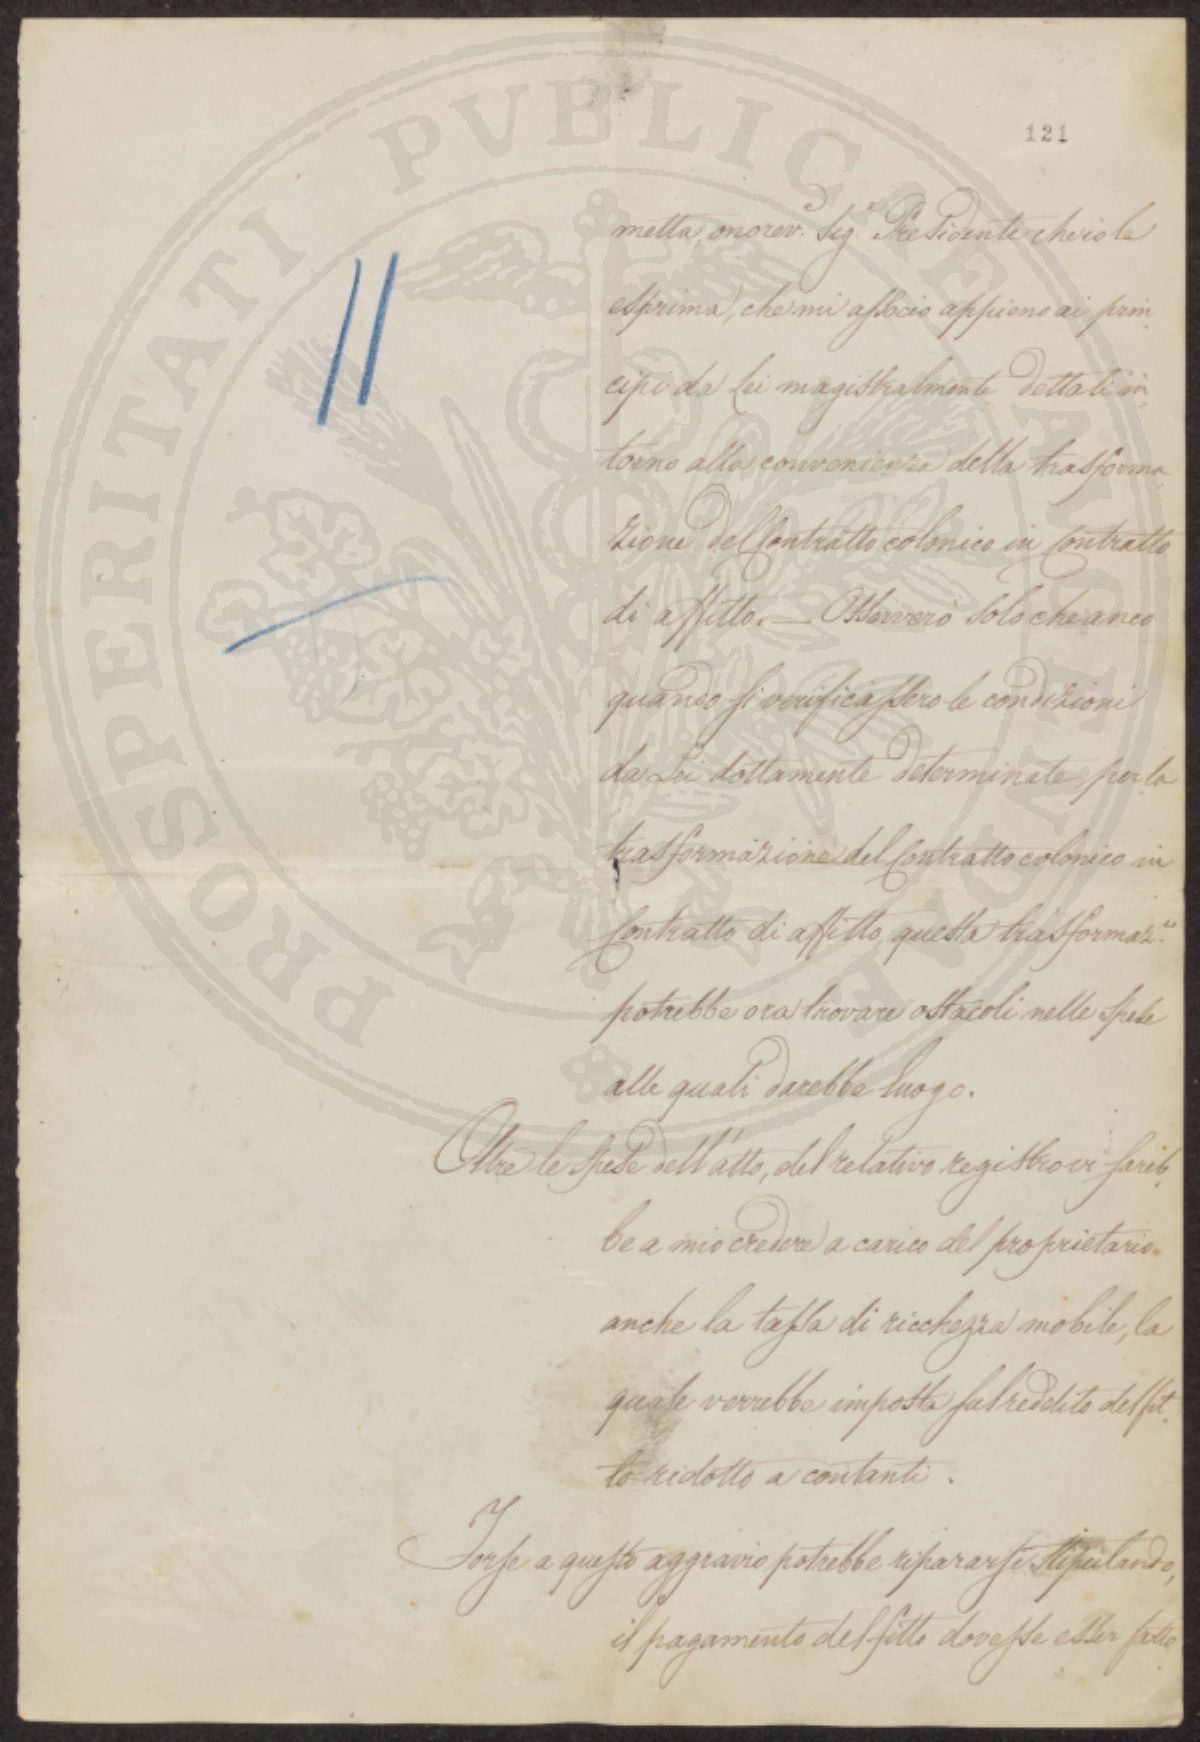 PROSPERITATI PVBLICAE AVGENDAE
121
metta, onorev. Sig.r Presidente che io le
esprima, che mi associo appieno ai prin-
cipi da Lei magistralmente dettati in-
torno alla convenienza della trasforma-
zione del Contratto colonico in Contratto
di affitto. — Osserverò solo che anco
quando si verificassero le condizioni
da Lei dottamente determinate per la
trasformazione del Contratto colonico in
Contratto di affitto, questa trasformaz.e
potrebbe ora trovare ostacoli nelle spese
alle quali darebbe luogo.
Oltre le spese dell'atto, del relativo registro vi sareb-
be a mio credere a carico del proprietario
anche la tassa di ricchezza mobile, la
quale verrebbe imposta sul reddito del fit-
to ridotto a contanti.
Forse a questo aggravio potrebbe ripararsi stipulando,
il pagamento del fitto dovesse esser fatto